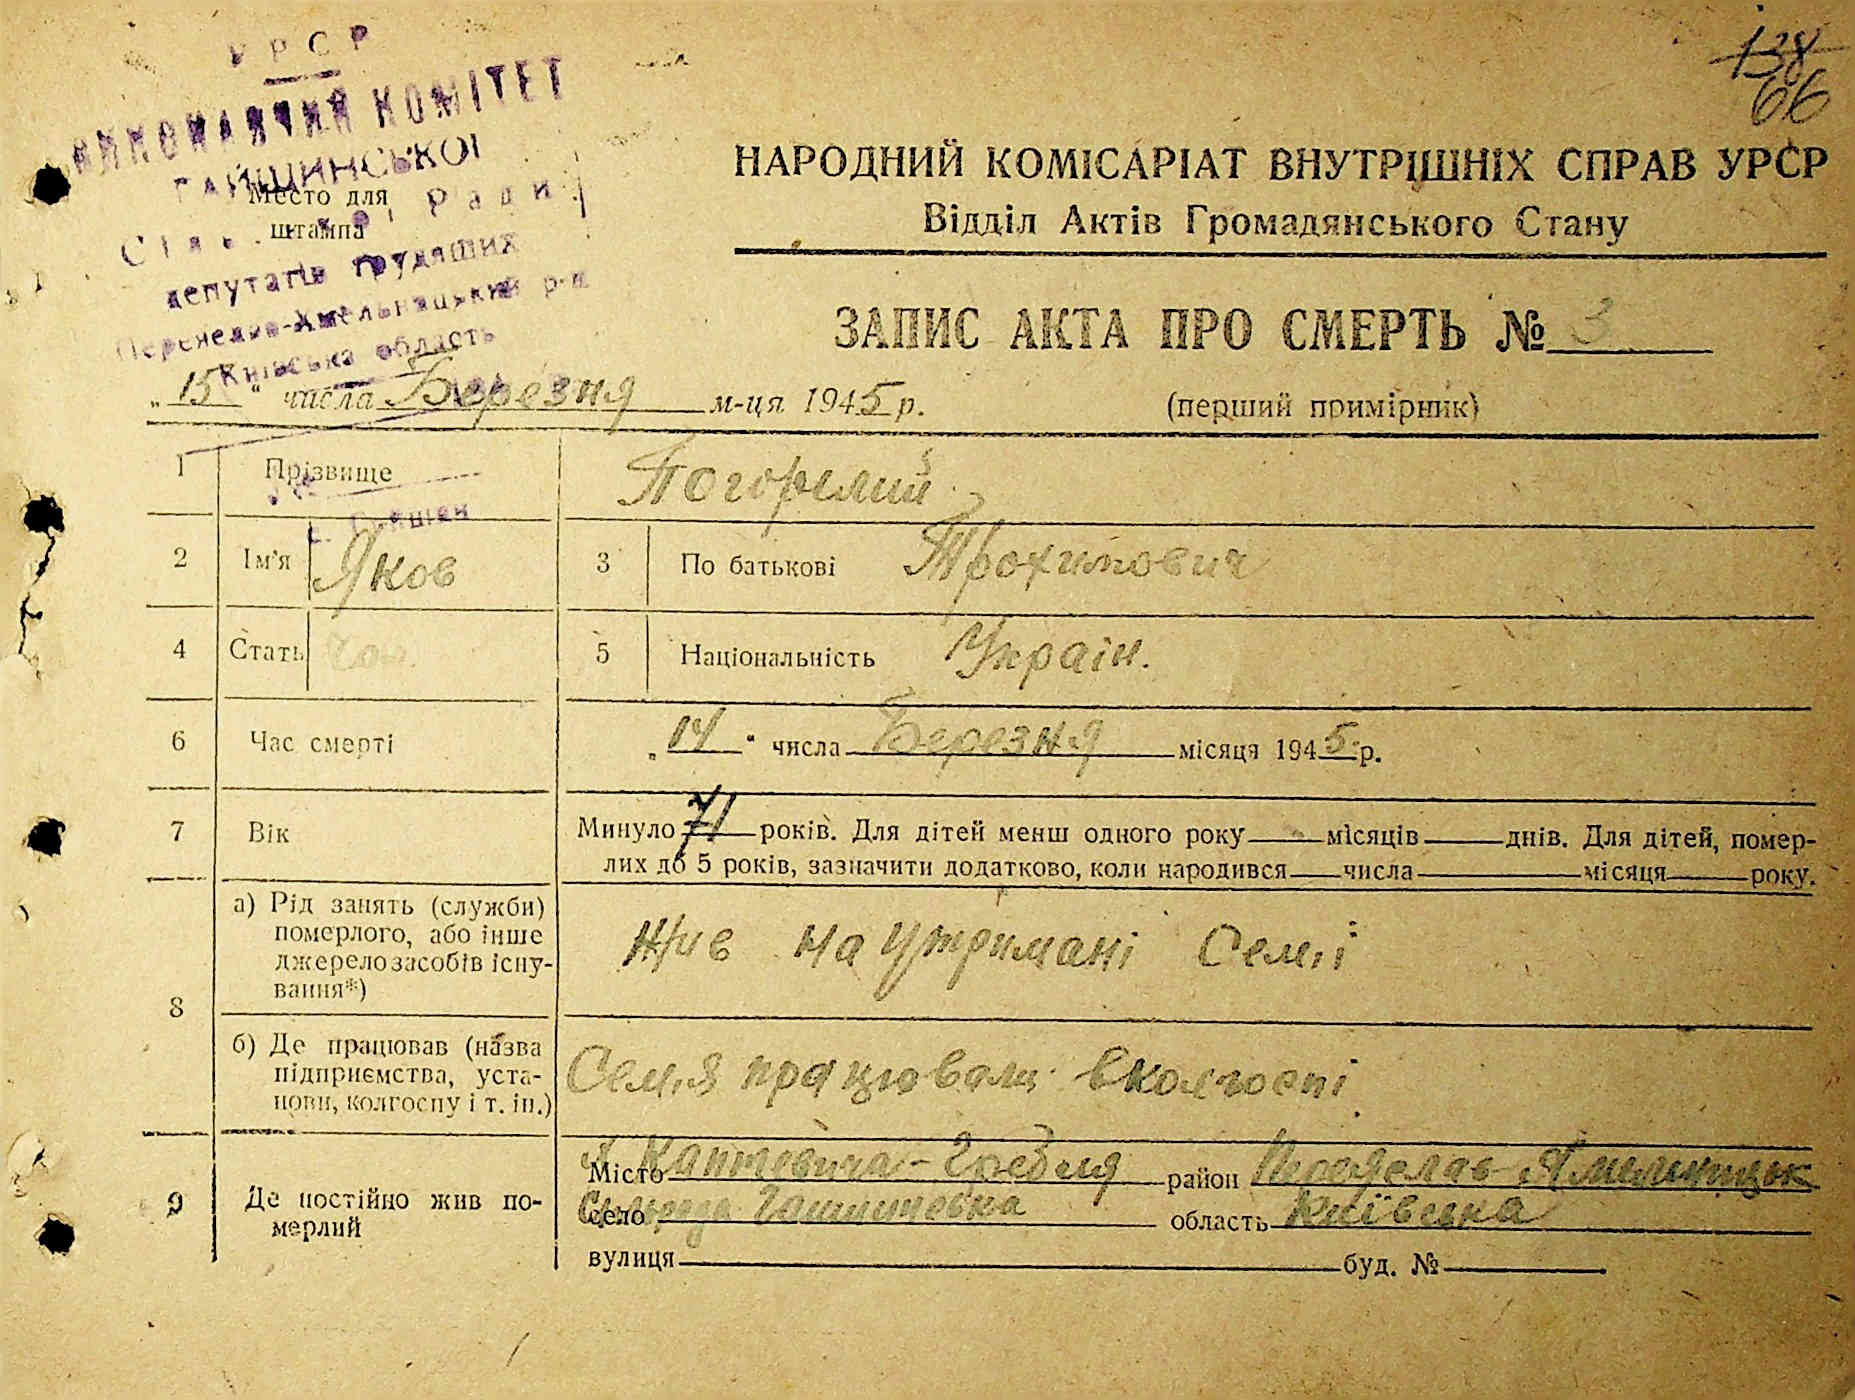 138
66
УРСР
ВИКОНАВЧИЙ КОМІТЕТ
ГАЙШИНСЬКОЇ
Сільської Ради
депутатів трудящих
Переяслав-Хмельницький р-н
Київська область
Место для
штампа
НАРОДНИЙ КОМІСАРІАТ ВНУТРІШНІХ СПРАВ УРСР
Відділ Актів Громадянського Стану
ЗАПИС АКТА ПРО СМЕРТЬ № 3
„15" числа Березня м-ця 1945 р.
(перший примірник)
1 Прізвище Погорелий
2 Ім'я Яков 3 По батькові Трохимович
4 Стать Чол. 5 Національність Україн.
6 Час смерті „14" числа Березня місяця 1945 р.
7 Вік Минуло 71 років. Для дітей менш одного року місяців днів. Для дітей, помер-
лих до 5 років, зазначити додатково, коли народився числа місяця року.
8 а) Рід занять (служби)
померлого, або інше
джерело засобів існу-
вання*)
Жив на утримані Семії
б) Де працював (назва
підприємства, уста-
нови, колгоспу і т. ін.)
Семія працювали вколгоспі
9 Де постійно жив по-
мерлий
Місто Каптевича-Гребля район Переяслав-Хмельницьк
село область Київська
вулиця буд. №